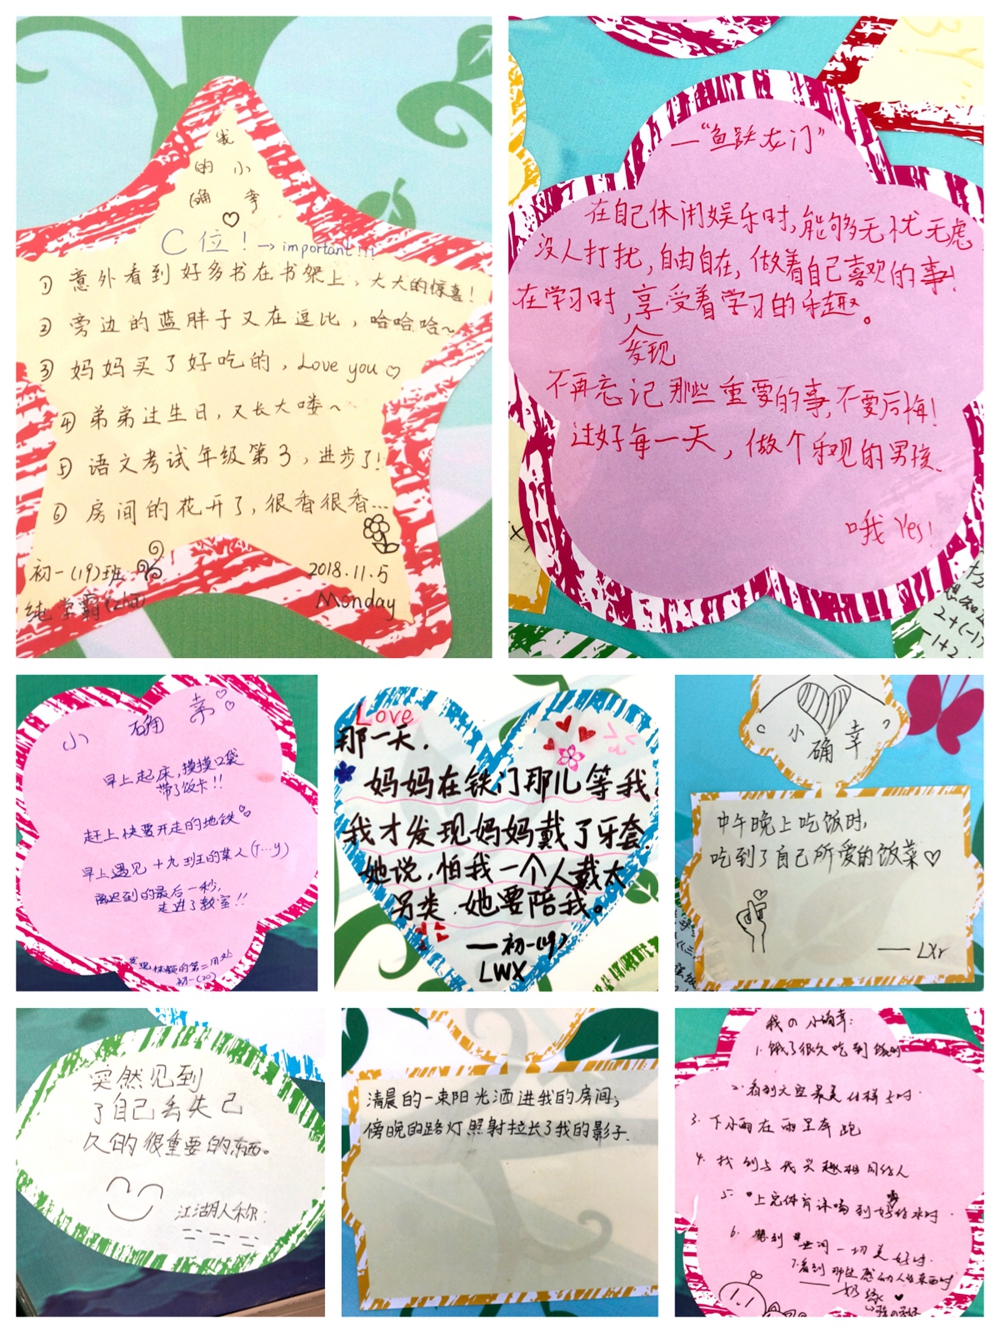 我
的小
确幸
C位！→important!!!
① 意外看到好多书在书架上，大大的惊喜！
② 旁边的蓝胖子又在逗比，哈哈哈~
③ 妈妈买了好吃的，Love you♡
④ 弟弟过生日，又长大喽~
⑤ 语文考试年级第3，进步了！
⑥ 房间的花开了，很香很香…
初一(19)班
2018.11.5
纯学霸
Monday
—“鱼跃龙门”
在自己休闲娱乐时，能够无忧无虑
没人打扰，自由自在，做着自己喜欢的事！
在学习时，享受着学习的乐趣。
发现
不再忘记那些重要的事，不要后悔！
过好每一天，做个乐观的男孩
哦 Yes！
小确幸
早上起床，摸摸口袋
带了饭卡!!
赶上快要开走的地铁
早上遇见十九班的某人(T…y)
离迟到的最后一秒，
走进了教室!!
初一(20)
Love
那一天，
妈妈在铁门那儿等我。
我才发现妈妈戴了牙套.
她说，怕我一个人戴太
另类，她要陪我。
——初一(19)
LWX
小确幸
中午晚上吃饭时，
吃到了自己所爱的饭菜♡
——LXr
突然见到
了自己丢失已
久的很重要的东西。
江湖人称：
清晨的一束阳光洒进我的房间；
傍晚的路灯照射拉长了我的影子.
我の小确幸：
1. 饿了很久吃到饭时
2. 看到天空最美的样子时.
3. 下小雨在雨里奔跑
4. 找到与我兴趣相同的人
5. 上完体育课喝到好的水时.
6. 想到世间一切美好时.